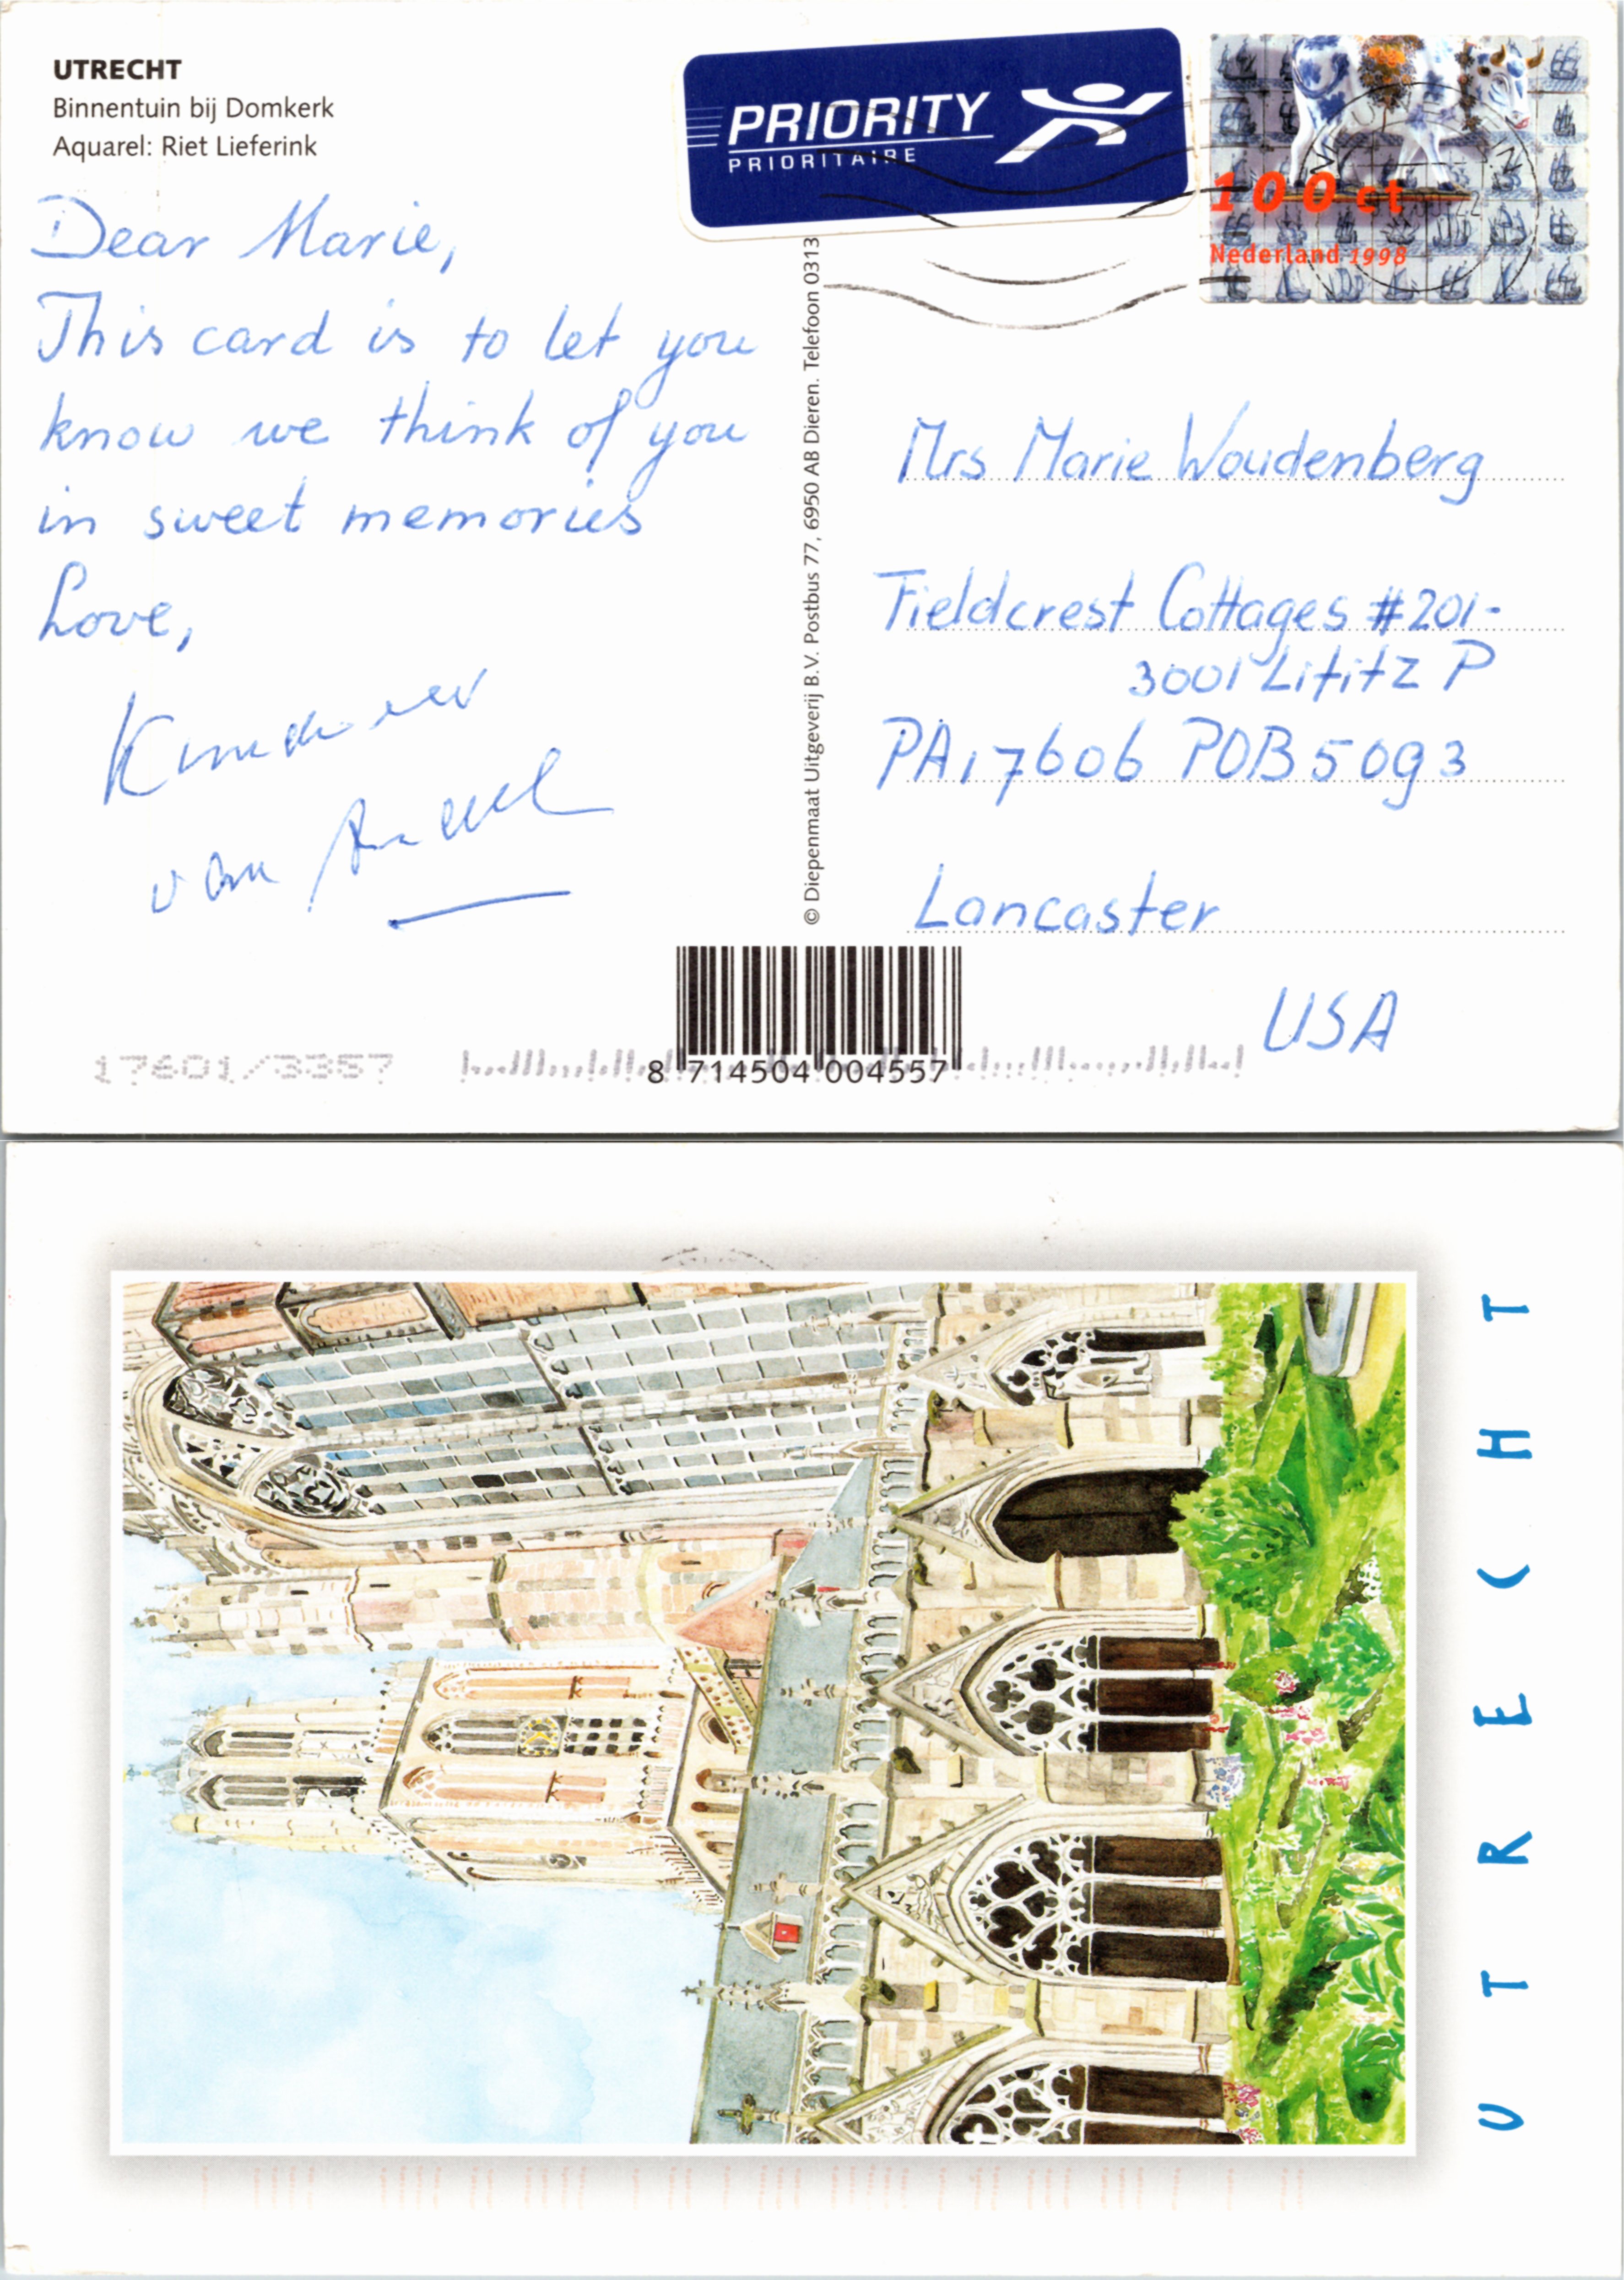 UTRECHT
Binnentuin bij Domkerk
Aquarel: Riet Lieferink
PRIORITY
PRIORITAIRE
100 ct
Nederland 1998
Dear Marie,
This card is to let you
know we think of you
in sweet memories
Love,
van
© Diepenmaat Uitgeverij B.V. Postbus 77, 6950 AB Dieren. Telefoon 0313
Mrs Marie Woudenberg
Fieldcrest Cottages #201-
3001 Lititz P
PA 17606 POB 5093
Lancaster
USA
17601/3357
8 714504 004557
UTRECHT